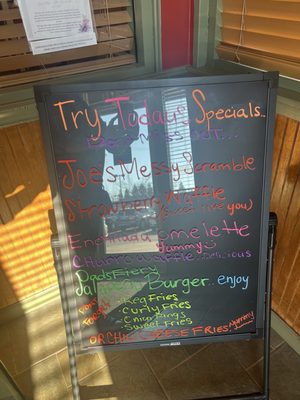 Try Today Specials...
DON'T MISS OUT...
Joes Messy Scramble
Strawberry Waffle
(sweet like you)
Enchilada omelette
yummy
Churro waffle Delicious
Dads Fiery
Jalapeno Burger.. enjoy
Reg Fries
Curly Fries
Onion Rings
Sweet Fries
OR CHILI CHEESE FRIES yummy